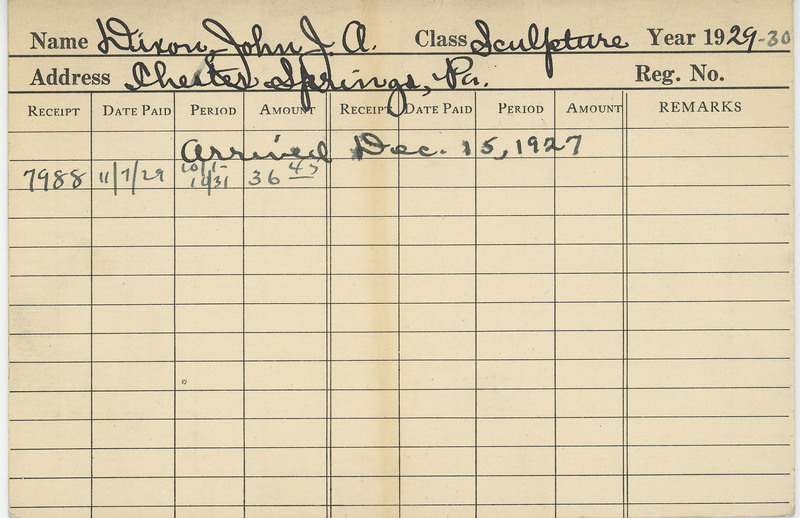 Name Dixon, John J. A. Class Sculpture Year 1929-30
Address Chester Springs, Pa. Reg. No.
RECEIPT DATE PAID PERIOD AMOUNT RECEIPT DATE PAID PERIOD AMOUNT REMARKS
Arrived Dec. 15, 1927
7988 11/7/29 10/1- 10/31 36 45